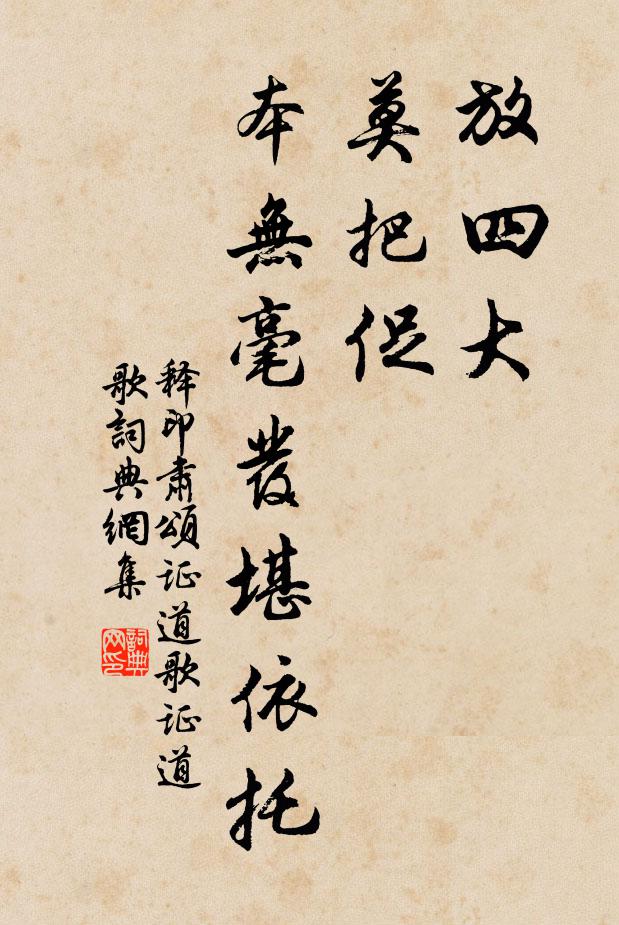 放四大
莫把促
本無毫發堪依托
释印肅頌证道歌证道
歌詞典網集
詞典
网印